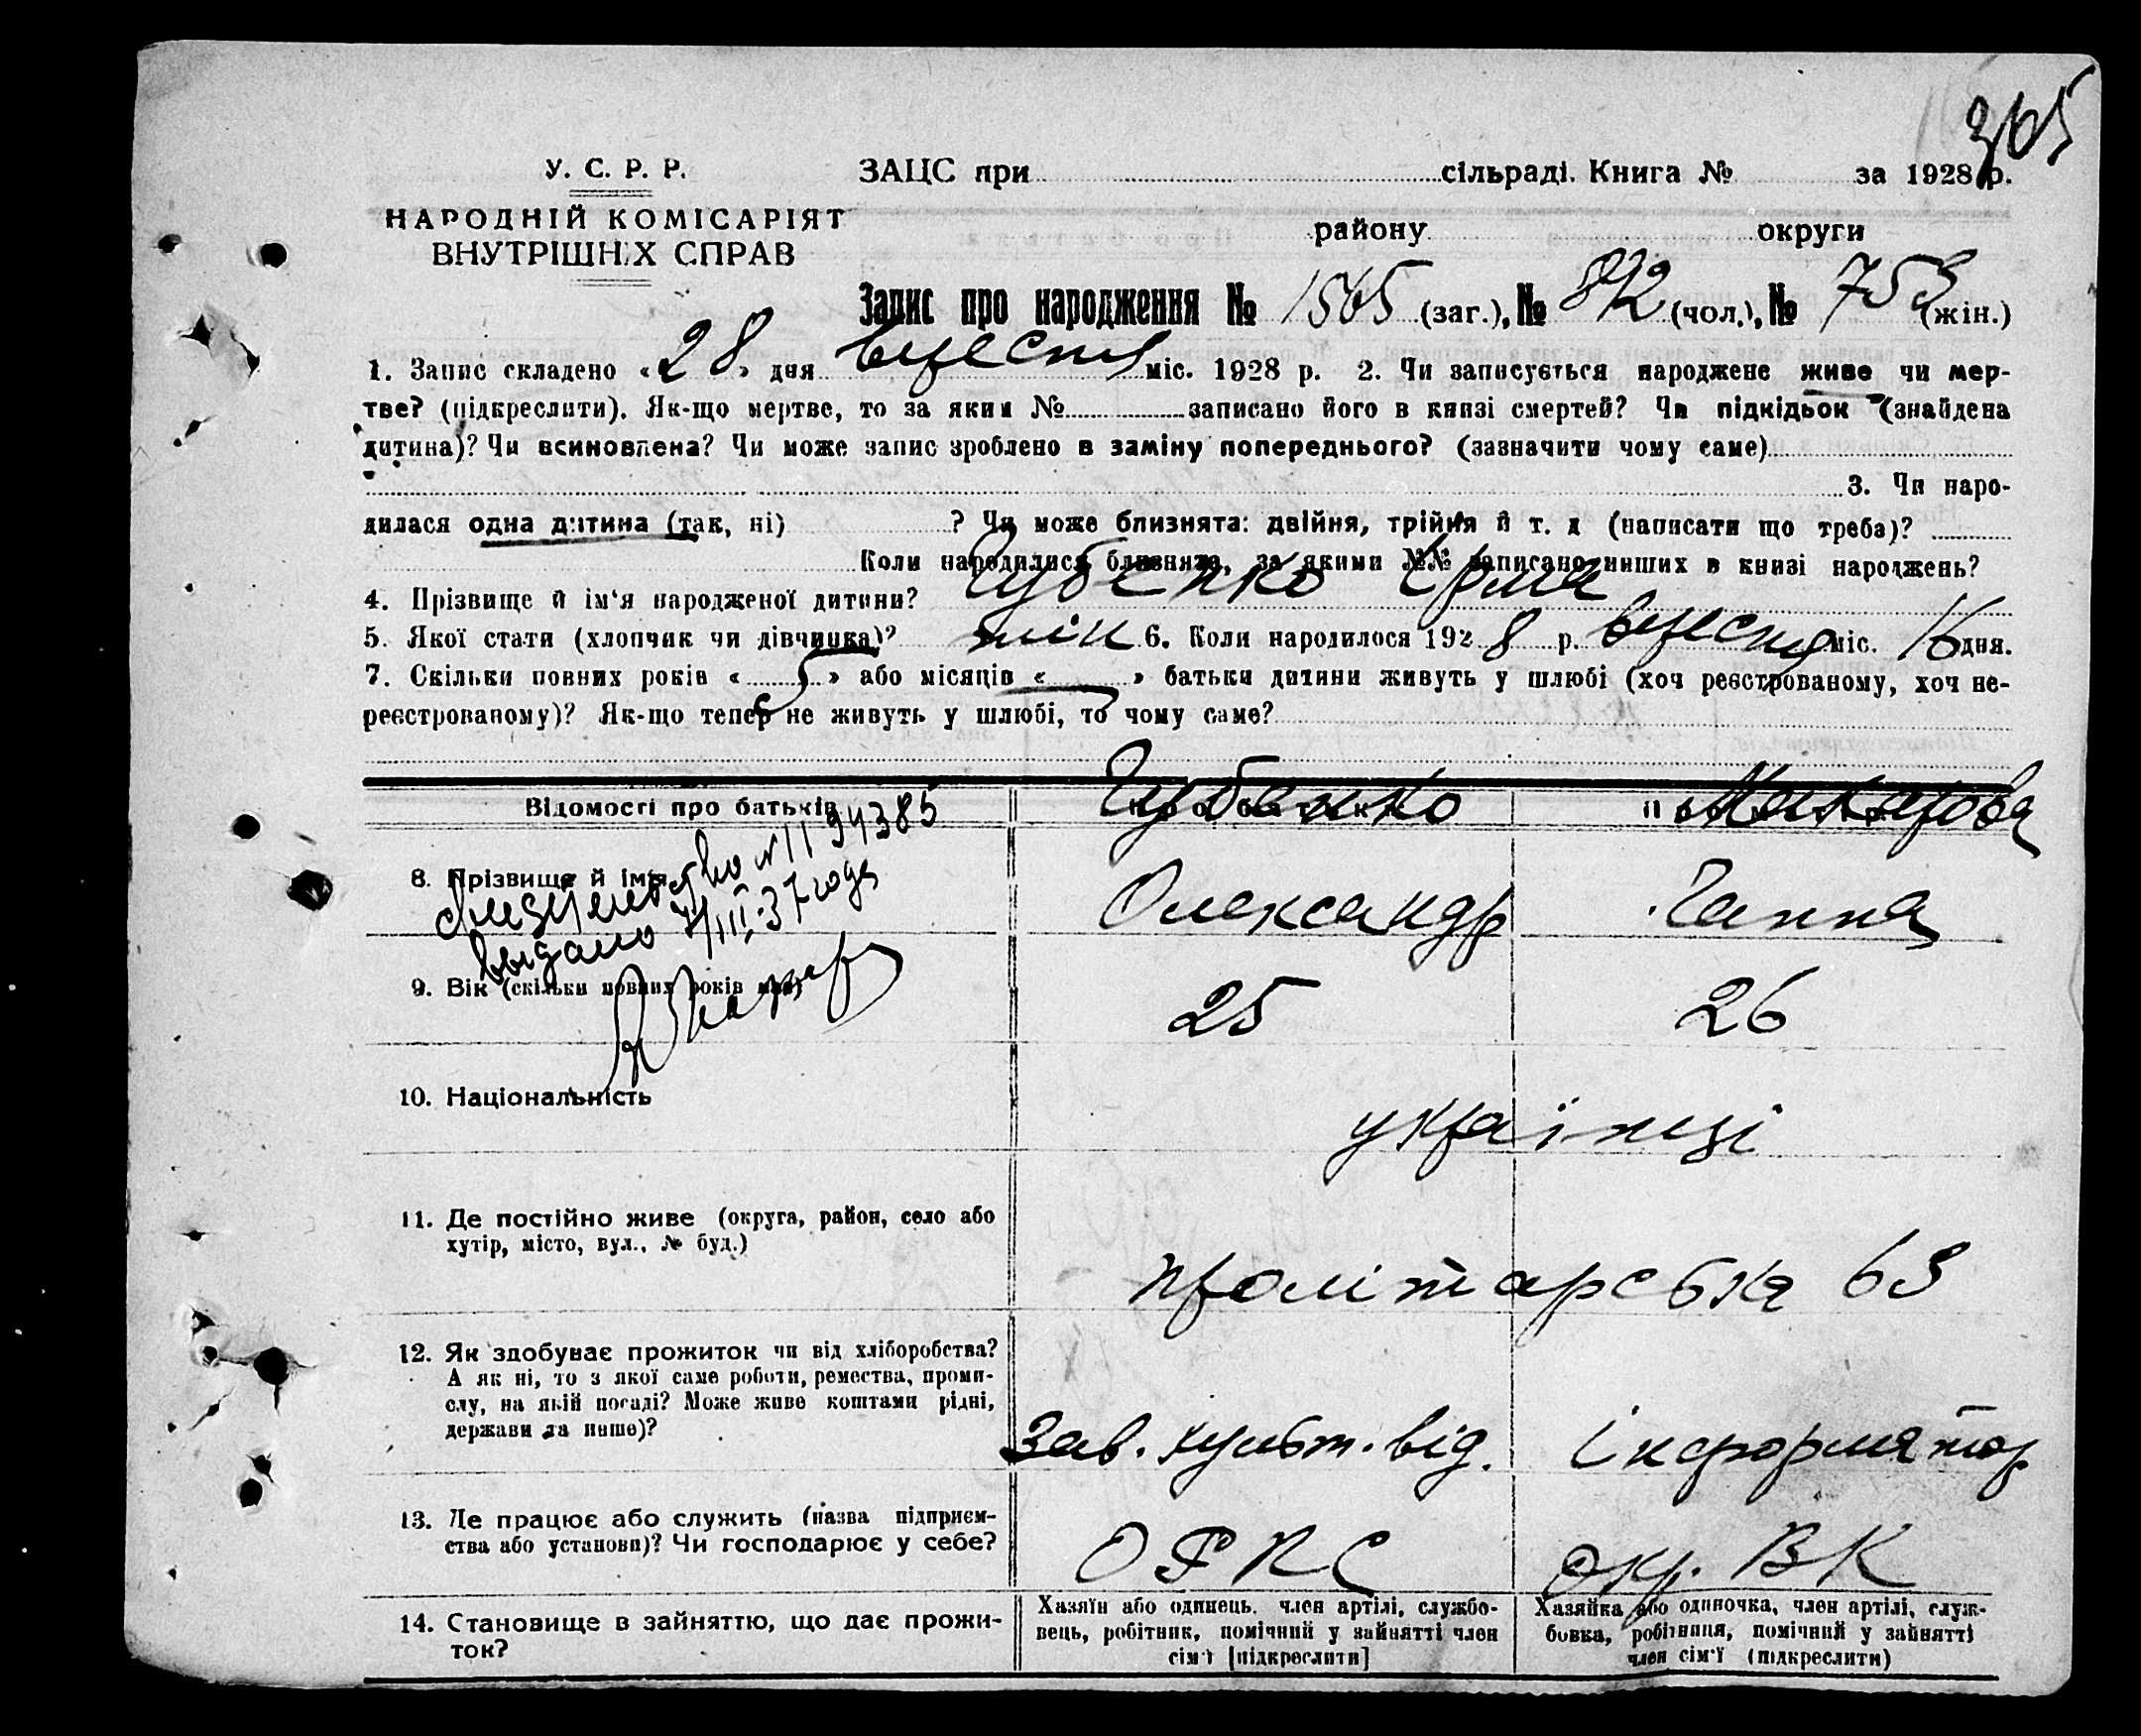 365
У. С. Р. Р.
ЗАЦС при сільраді. Книга № за 1928 р.
НАРОДНІЙ КОМІСАРІЯТ
ВНУТРІШНІХ СПРАВ
району округи
Запис про народження № 1565 (заг.), № 812 (чол.), № 753 (жін.)
1. Запис складено «28» дня вересня міс. 1928 р. 2. Чи записується народжене живе чи мер-
тве? (підкреслити). Як-що мертве, то за яким № записано його в книзі смертей? Чи підкідьок (знайдена
дитина)? Чи всиновлена? Чи може запис зроблено в заміну попереднього? (зазначити чому саме)
3. Чи наро-
дилася одна дитина (так, ні) ? Чи може близнята: двійня, трійня й т. д (написати що треба)?
Коли народилися близнята, за якими №№ записано инших в книзі народжень?
4. Прізвище й ім'я народженої дитини? Губенко
5. Якої стати (хлопчик чи дівчинка)? жін 6. Коли народилося 1928 р. вересня міс. 16 дня.
7. Скільки повних років «5» або місяців « — » батьки дитини живуть у шлюбі (хоч реєстрованому, хоч не-
реєстрованому)? Як-що тепер не живуть у шлюбі, то чому саме?
Відомості про батьків Губенко Макарова
8. Прізвище й ім'я Олександр Ганна
выдано 7/III-37 года
9. Вік (скільки повних років має) 25 26
10. Національність українці
11. Де постійно живе (округа, район, село або
хутір, місто, вул., № буд.)
пролітарська 63
12. Як здобуває прожиток чи від хліборобства?
А як ні, то з якої саме роботи, ремества, проми-
слу, на якій посаді? Може живе коштами рідні,
держави та инше)?
Зав. культ. від. Інформатор
13. Де працює або служить (назва підприєм-
ства або установи)? Чи господарює у себе?
ОРПС Окр. ВК
14. Становище в зайняттю, що дає прожи-
ток?
Хазяїн або одинець, член артілі, службо-
вець, робітник, помічний у зайнятті член
сім'ї [підкреслити]
Хазяйка або одиночка, член артілі, служ-
бовка, робітниця, помічний у зайнятті
член сім'ї (підкреслити)